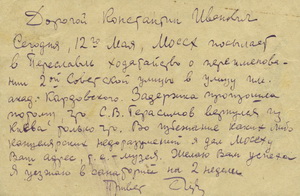 Дорогой Константин Иванович
Сегодня, 12го Мая, Моссх посылает
в Переславль ходатайство о переименова-
нии 2ой Советской улицы в улицу им.
акад. Кардовского. Задержка произошла
потому, что С.В. Герасимов вернулся из
Киева только что. Во избежание каких либо
канцелярских недоразумений я дал Моссху
Ваш адрес, т.е. музея. Желаю Вам успеха
Я уезжаю в санаторию на 2 недели
Привет